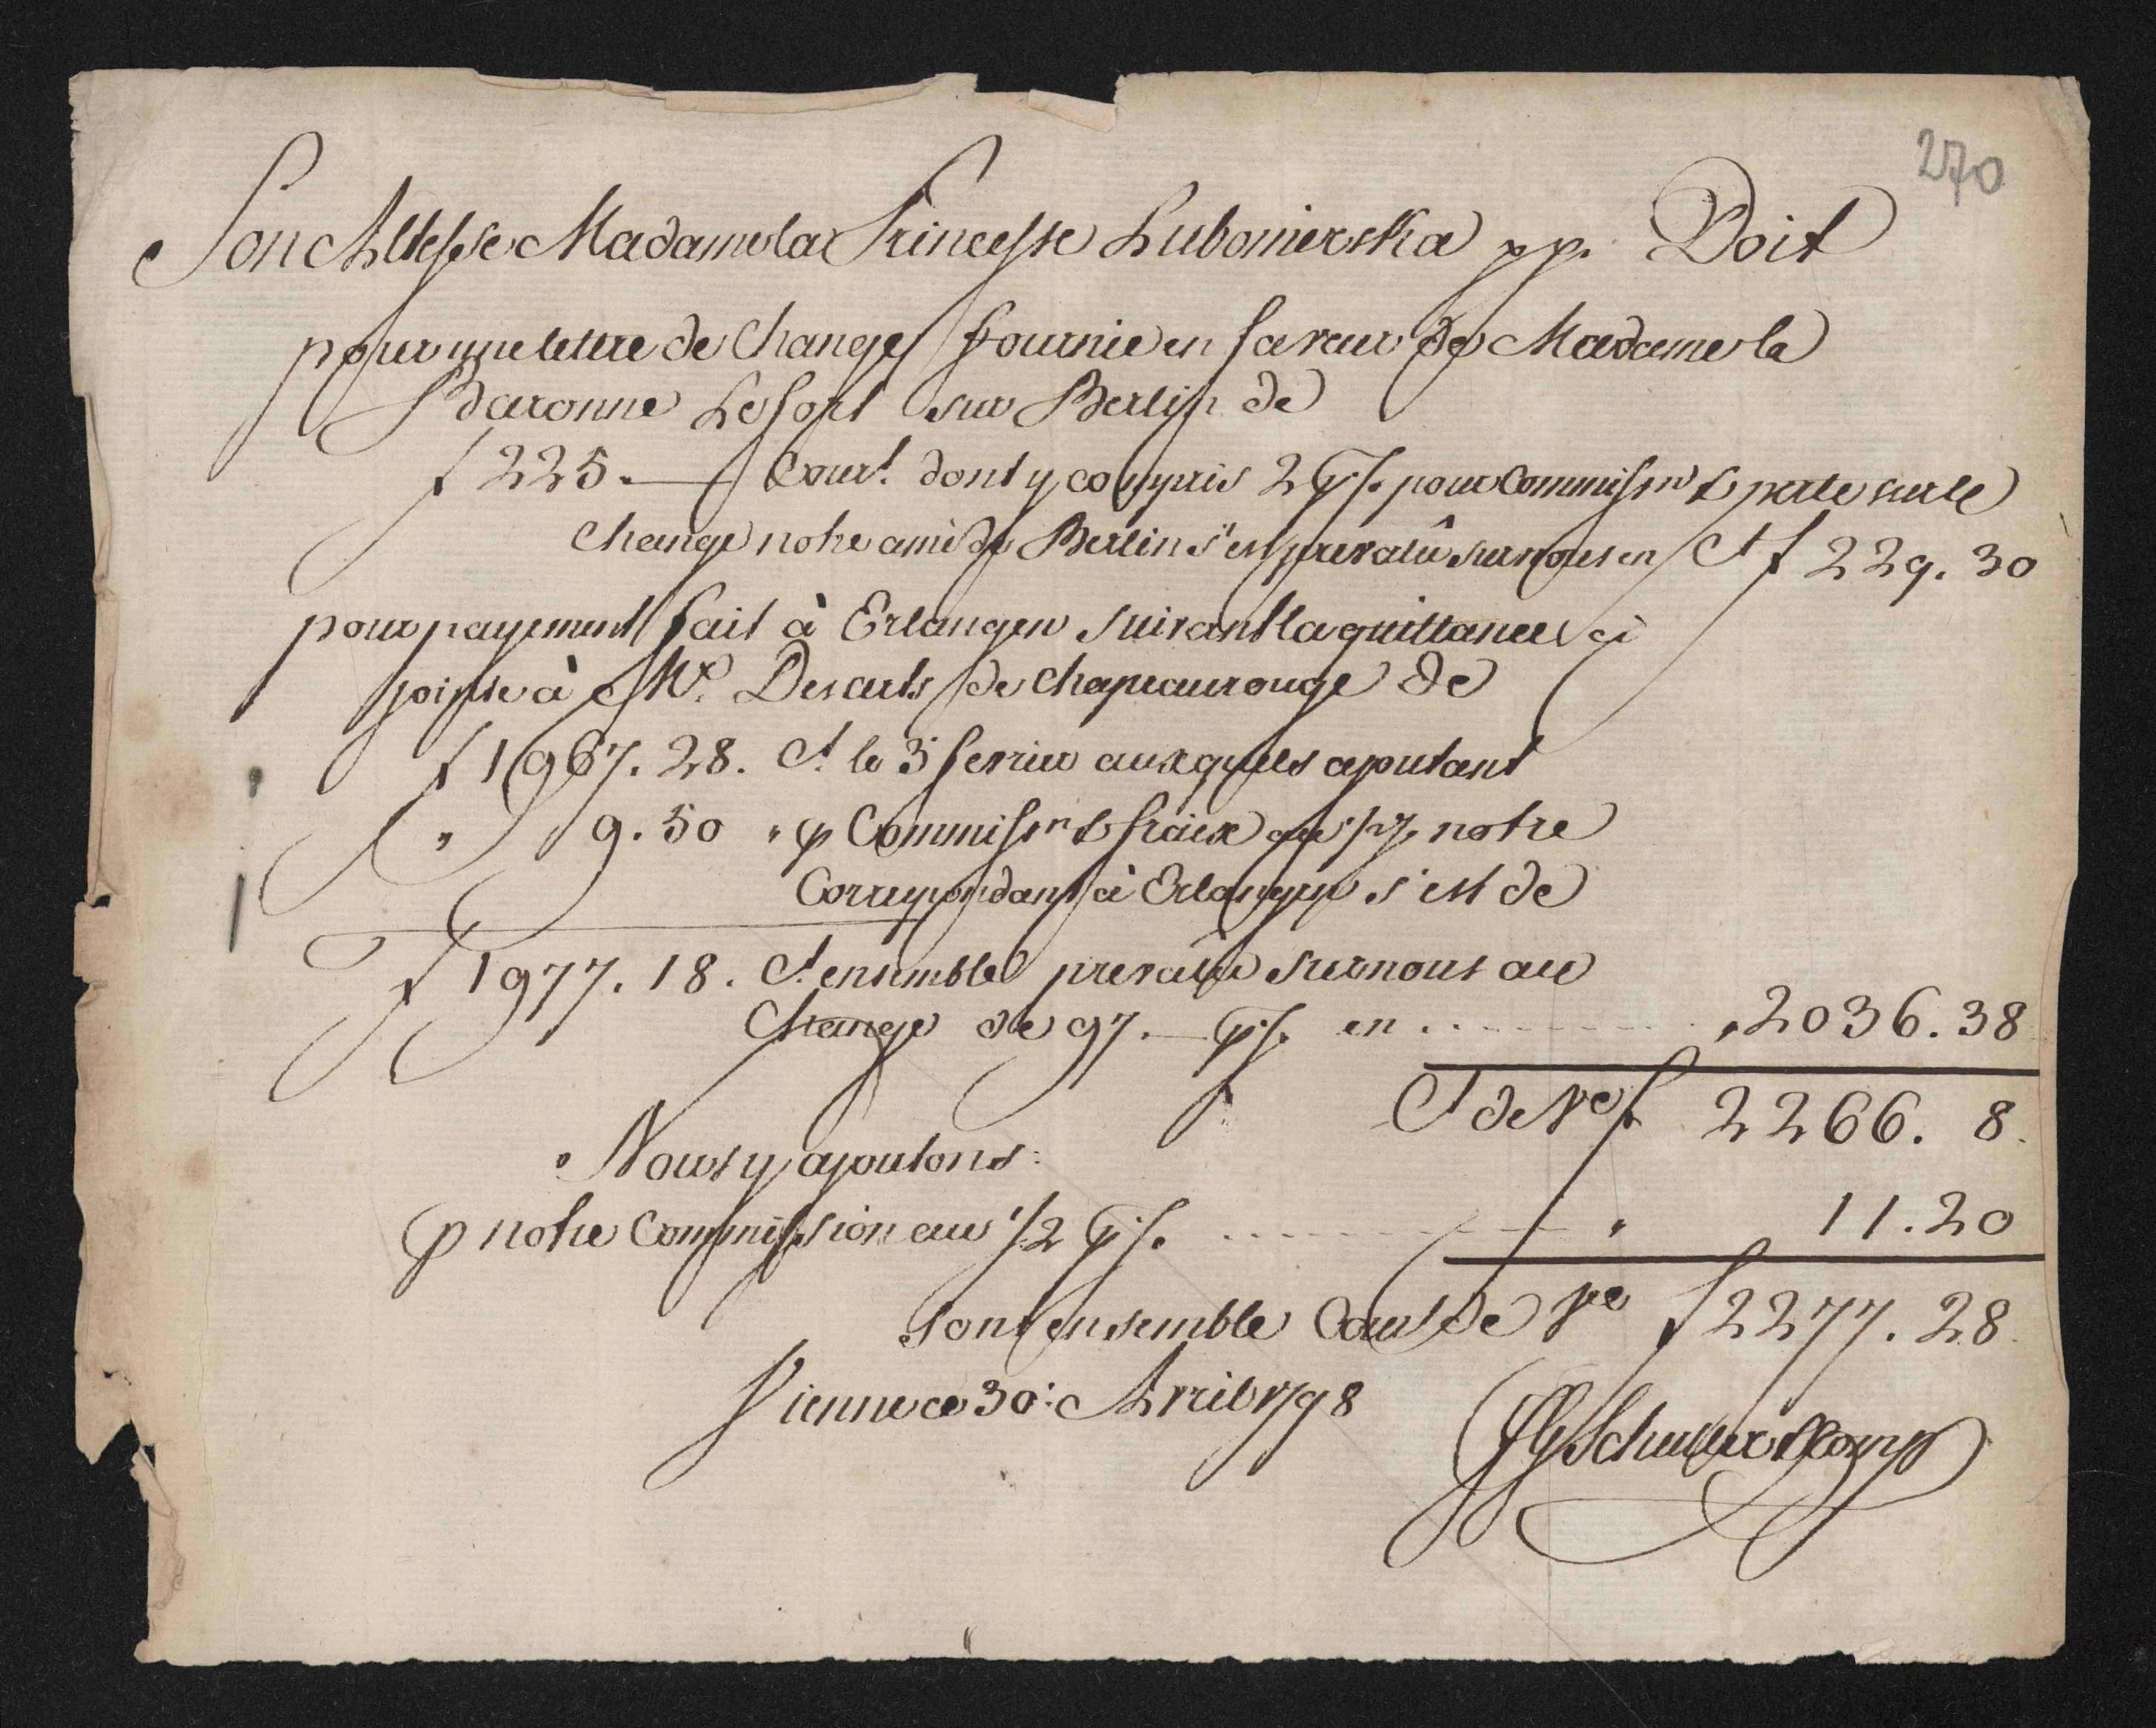 270
Son Altesse Madame la Princesse Lubomierska pp. Doit
pour une lettre de Change fournie en faveur de Madame la
Baronne Lefort sur Berlin de
f 225.— Cour.t dont y compris 2 p% pour Commiss.n & perte sur le
Change notre ami de Berlin s'est prevalû sur nous en Ct f 229.30
pour payement fait à Erlangen suivant la quittance ci
jointe à Mr. Desarts de Chapeaurouge de
f 1967.28. Ct. le 3 fevrier auxquels ajoutant
" 9.50 " p Commiss.n & fraix notre
Correspondant à Erlangen s'est de
f 1977.18. Ct. ensemble prevalû sur nous au
Change de 97.— p% en . . . . . . . . . . " 2036.38
Ct de Ve f 2266. 8.
Nous y ajoutons:
p notre Commission au 1/2 p% . . . . . . . . . " 11.20
Sont ensemble Cour.t de Ve f 2277.28.
Vienne ce 30: Avril 1798
Schuller & Comp